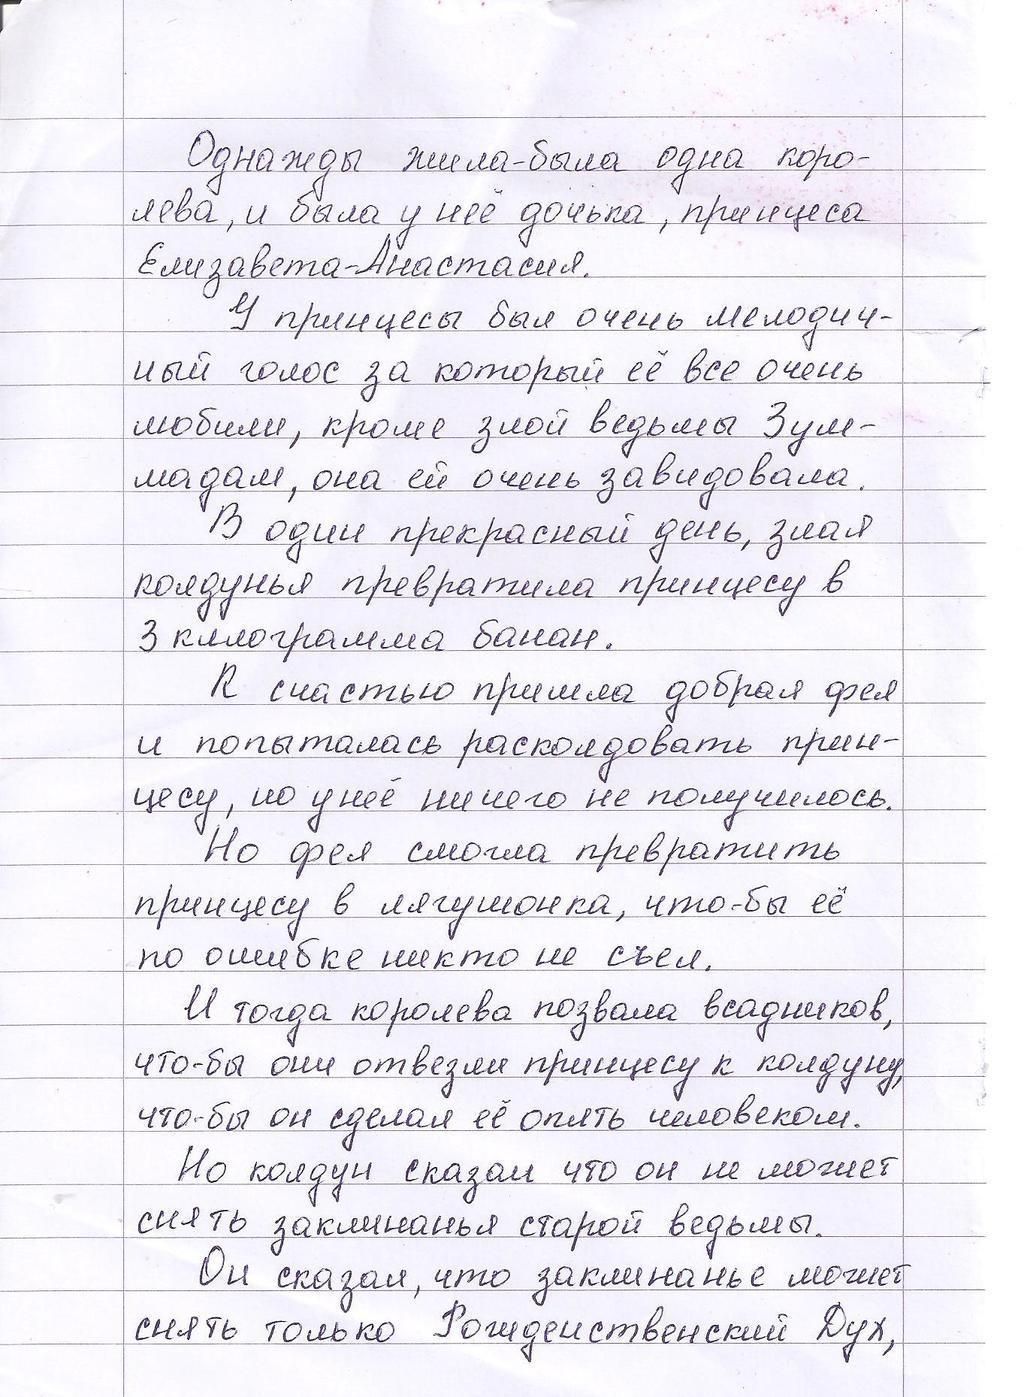 Однажды жила-была одна коро-
лева, и была у неё дочька, принцеса
Елизавета-Анастасия.
У принцесы был очень мелодич-
ный голос за который её все очень
любили, кроме злой ведьмы Зум-
мадам, она ей очень завидовала.
В один прекрасный день, злая
колдунья превратила принцесу в
3 килограмма банан.
К счастью пришла добрая фея
и попыталась расколдовать прин-
цесу, но у неё ничего не получилось.
Но фея смогла превратить
принцесу в лягушонка, что-бы её
по ошибке никто не съел.
И тогда королева позвала всадников,
что-бы они отвезли принцесу к колдуну,
что-бы он сделал её опять человеком.
Но колдун сказал что он не может
снять заклинанья старой ведьмы.
Он сказал, что заклинанье может
снять только Рожденственский Дух,